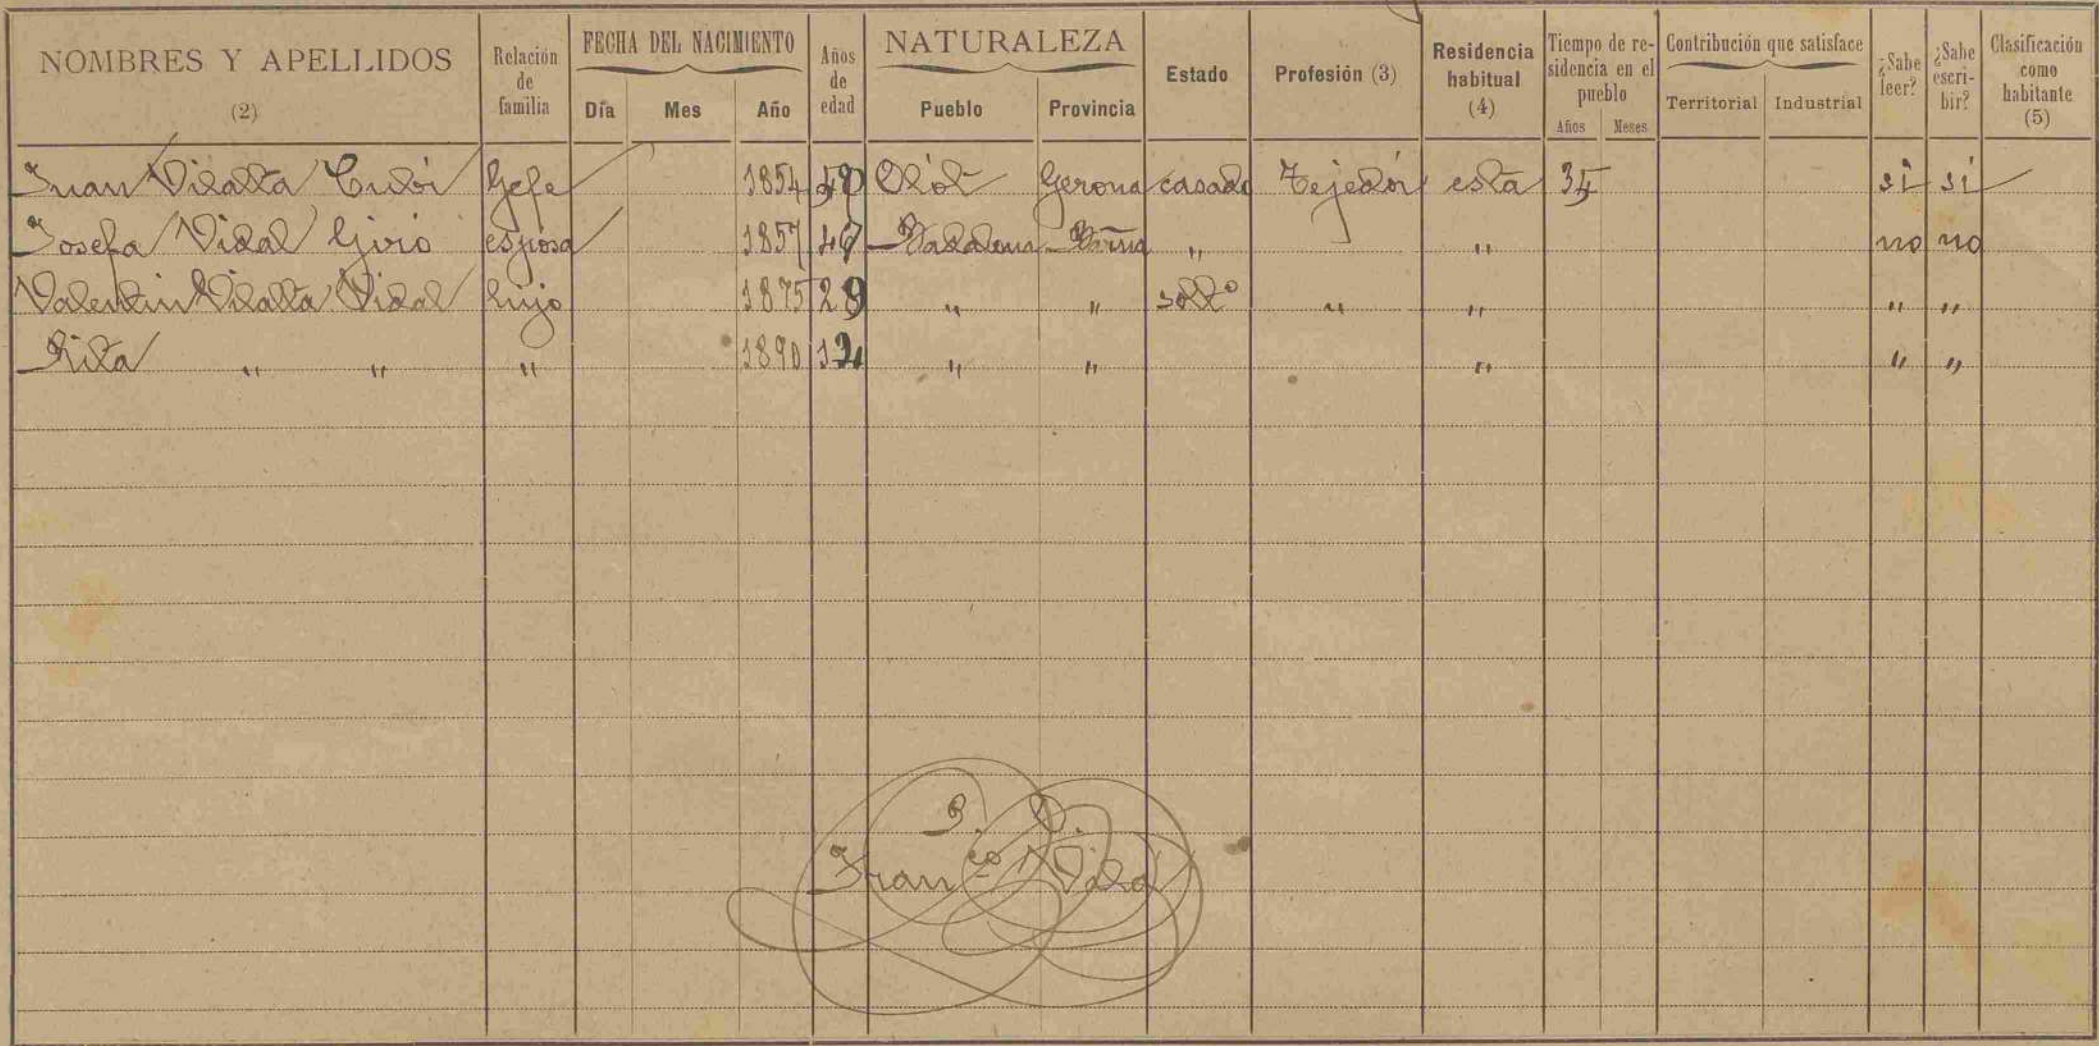 NOMBRES Y APELLIDOS (2) Relación de familia FECHA DEL NACIMIENTO Día Mes Año Años de edad NATURALEZA Pueblo Provincia Estado Profesión (3) Residencia habitual (4) Tiempo de residencia en el pueblo Años Meses Contribución que satisface Territorial Industrial ¿Sabe leer? ¿Sabe escribir? Clasificación como habitante (5)
Juan Vilalta Cubí Gefe 1854 Olót Gerona casado Tejedór esta 35 sì sí
Josefa Vidal Giró esposa 1857 47 Badalona " " no no
Valentin Vilalta Vidal hijo 1875 29 " " solt° " " " "
Rita " " " 1890 " " " " "
P. O.
Franco Vila